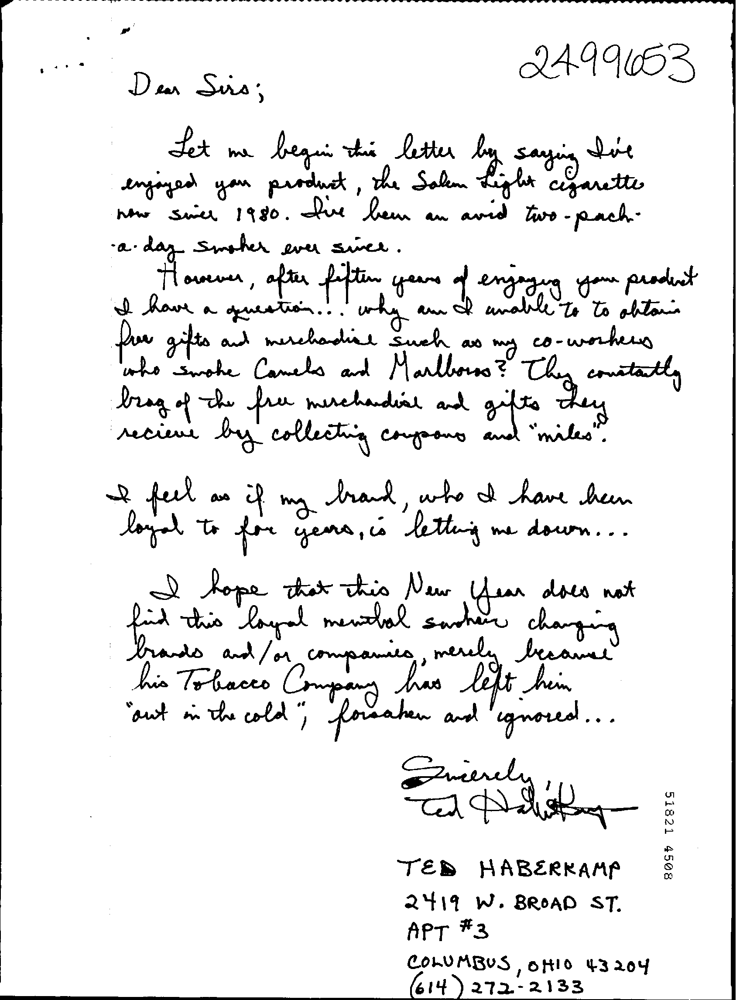 2499653
Dear Sirs;
Let me begin this letter by saying I've
enjoyed your product, the Salem Light cigarette
now since 1980. I've been an avid two-pack-
-a-day smoker ever since.
However, after fifteen years of enjoying your product
I have a question... why am I unable to to obtain
free gifts and merchandise such as my co-workers
who smoke Camels and Marlboros? They constantly
brag of the free merchandise and gifts they
recieve by collecting coupons and "miles".
I feel as if my brand, who I have been
loyal to for years, is letting me down...
I hope that this New Year does not
find this loyal menthol smoker changing
brands and/or companies, merely because
his Tobacco Company has left him
"out in the cold", forsaken and ignored...
Sincerely,
Ted Haberkamp
TED HABERKAMP
2419 W. BROAD ST.
APT #3
COLUMBUS, OHIO 43204
(614) 272-2133
51821 4508